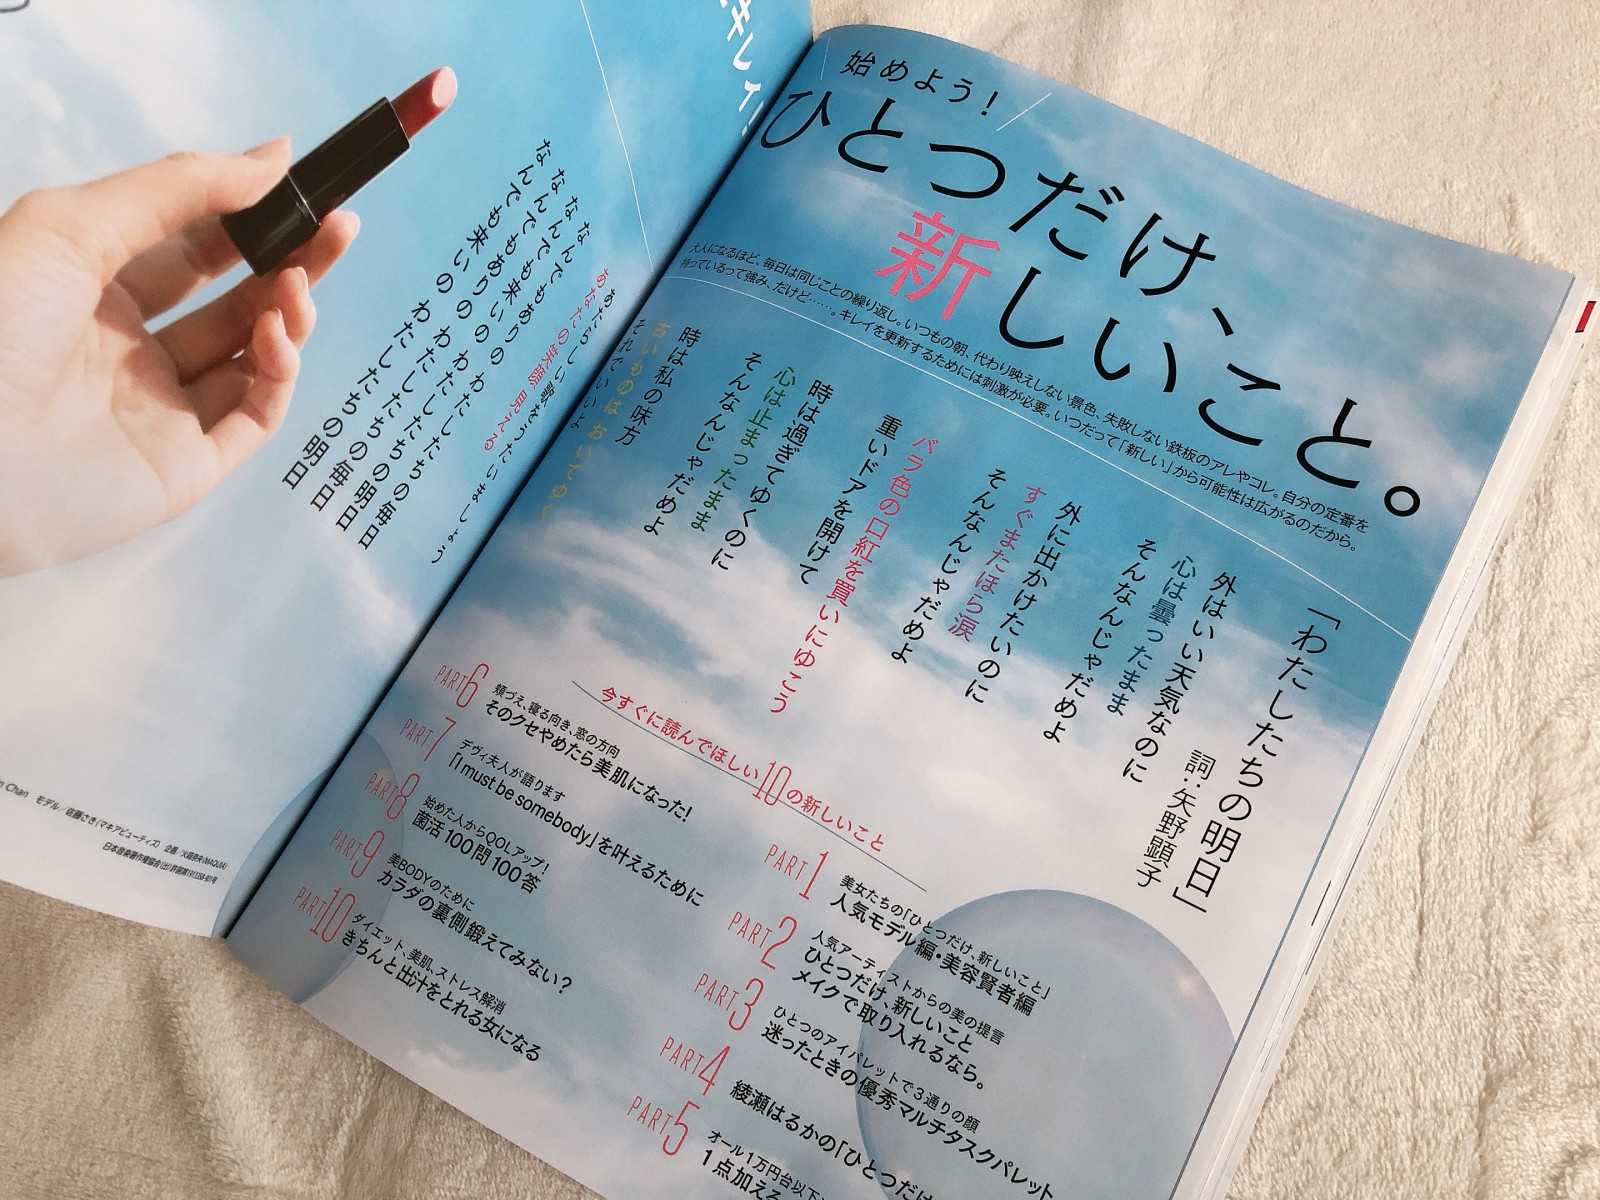 始めよう!
ひとつだけ、
新しいこと。
大人になるほど、毎日は同じことの繰り返し。いつもの朝、代わり映えしない景色、失敗しない鉄板のアレやコレ。自分の定番を
持っているって強み、だけど……。キレイを更新するためには刺激が必要。いつだって「新しい」から可能性は広がるのだから。
「わたしたちの明日」
詞・矢野顕子
外はいい天気なのに
心は曇ったまま
そんなんじゃだめよ
外に出かけたいのに
すぐまたほら涙
そんなんじゃだめよ
バラ色の口紅を買いにゆこう
重いドアを開けて
時は過ぎてゆくのに
心は止まったまま
そんなんじゃだめよ
時は私の味方
古いものは おいてゆく
それでいいよ
あたらしい歌をうたいましょう
あなたの笑顔 見える
なんでもありの わたしたちの毎日
なんでも来いの わたしたちの明日
なんでもありの わたしたちの毎日
なんでも来いの わたしたちの明日
今すぐに読んでほしい10の新しいこと
PART1
美女たちの「ひとつだけ、新しいこと」
人気モデル編・美容賢者編
PART2
人気アーティストからの美の提言
ひとつだけ、新しいこと
メイクで取り入れるなら。
PART3
ひとつのアイパレットで3通りの顔
迷ったときの優秀マルチタスクパレット
PART4
綾瀬はるかの「ひとつだけ
PART5
オール1万円台以下
1点加える
PART6
頬づえ、寝る向き、窓の方向
そのクセやめたら美肌になった!
PART7
デヴィ夫人が語ります
「I must be somebody」を叶えるために
PART8
始めた人からQOLアップ!
菌活100問100答
PART9
美BODYのために
カラダの裏側鍛えてみない?
PART10
ダイエット、美肌、ストレス解消
きちんと出汁をとれる女になる
Chan モデル/佐藤さき(マキアビューティズ) 企画/
日本音楽著作権協会(出)許諾第